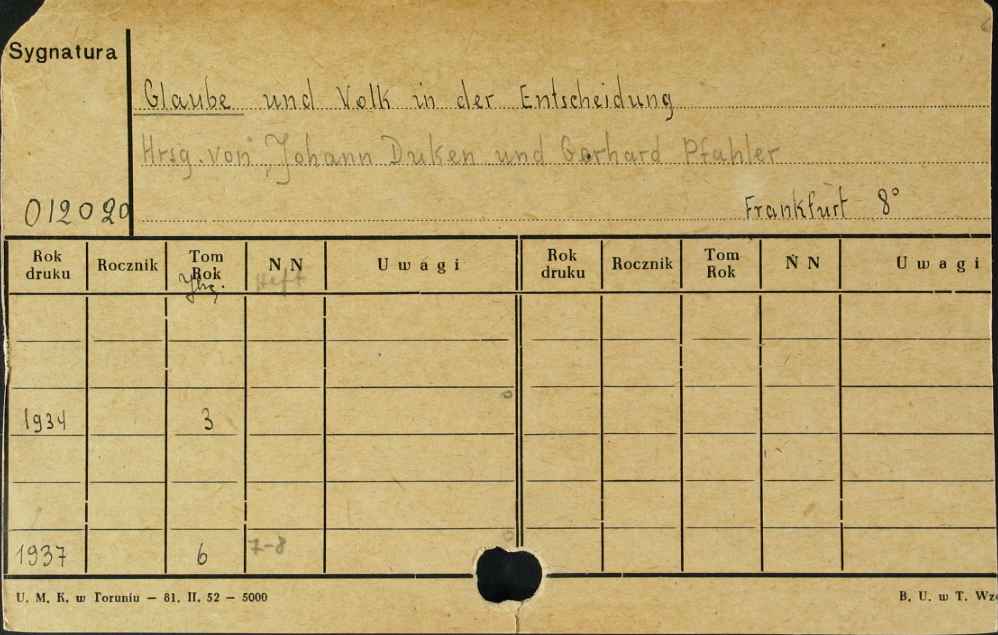 Sygnatura
Glaube und Volk in der Entscheidung
Hrsg. von Johann Duken und Gerhard Pfahler
012020
Frankfurt 8°
Rok druku Rocznik Tom Rok N N Uwagi Rok druku Rocznik Tom Rok N N Uwagi
Jhg. Heft
1934 3
1937 6 7-8
U. M. K. w Toruniu – 81. II. 52 – 5000
B. U. w T. Wzó